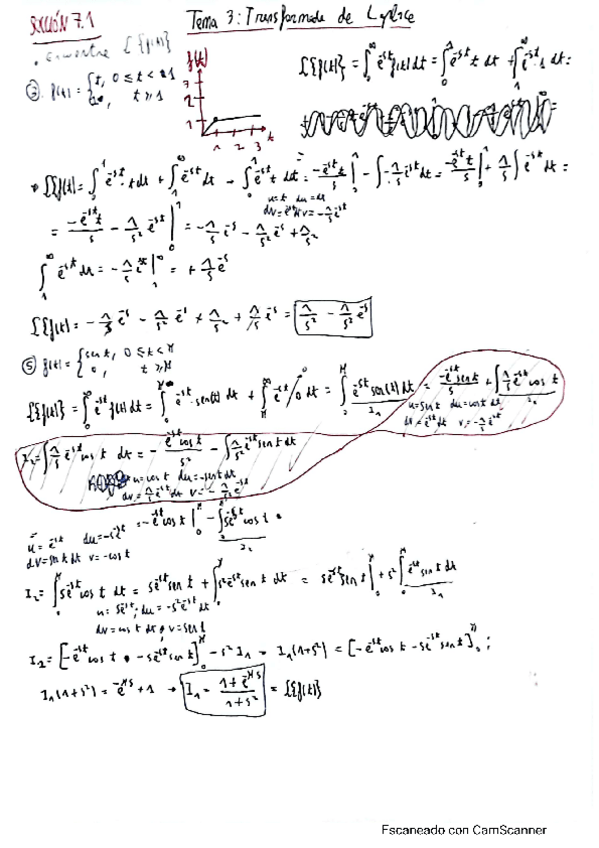 SECCIÓN 7.1 Tema 3: Transformada de Laplace
. Encuentre ℒ{f(t)}
③ f(t) = {t, 0 ≤ t < 1
t ≥ 1
f(t)
1 2 3 t
ℒ{f(t)} = ∫₀^∞ e^-st f(t) dt = ∫₀^1 e^-st t dt + ∫₁^∞ e^-st · 1 dt =
→ ℒ{f(t)} = ∫₀^1 e^-st · t dt + ∫₁^∞ e^-st dt → ∫₀^1 e^-st t dt = -e^-st t/s |₀^1 - ∫ -1/s e^-st dt = -e^-st t/s |₀^1 + 1/s ∫ e^-st dt =
u=t du=dt
dv=e^-st v=-1/s e^-st
= -e^-st t/s - 1/s² e^-st |₀^1 = -1/s e^-s - 1/s² e^-s + 1/s²
∫₁^∞ e^-st dt = -1/s e^-st |₁^∞ = + 1/s e^-s
ℒ{f(t)} = -1/s e^-s - 1/s² e^-s + 1/s² + 1/s e^-s = 1/s² - 1/s² e^-s
⑤ f(t) = {sen t, 0 ≤ t < π
0, t ≥ π
ℒ{f(t)} = ∫₀^∞ e^-st f(t) dt = ∫₀^π e^-st · sen(t) dt + ∫_π^∞ e^-st · 0 dt = ∫₀^π e^-st sen(t) dt = -e^-st sen t/s + ∫ 1/s e^-st cos t
I₁ I₂
u=sen t du=cos t dt
dv=e^-st dt v=-1/s e^-st
I₂ = ∫ 1/s e^-st cos t dt = - e^-st cos t/s² - ∫ 1/s² e^-st sen t dt
u=cos t du=-sen t dt
dv=1/s e^-st dt v=-1/s² e^-st
u=e^-st du=-se^-st = -e^-st cos t |₀^π - ∫ se^-st cos t
dv=sen t dt v=-cos t I₂
I₂ = ∫₀^π se^-st cos t dt = se^-st sen t + ∫₀^π s²e^-st sen t dt = se^-st sen t |₀^π + s² ∫₀^π e^-st sen t dt
u=se^-st; du=-s²e^-st dt I₁
dv=cos t dt v=sen t
I₁ = [-e^-st cos t - se^-st sen t]₀^π - s² I₁ → I₁(1+s²) = [-e^-st cos t - se^-st sen t]₀^π ;
I₁(1+s²) = e^-πs + 1 → I₁ = 1+e^-πs/1+s² = ℒ{f(t)}
Escaneado con CamScanner